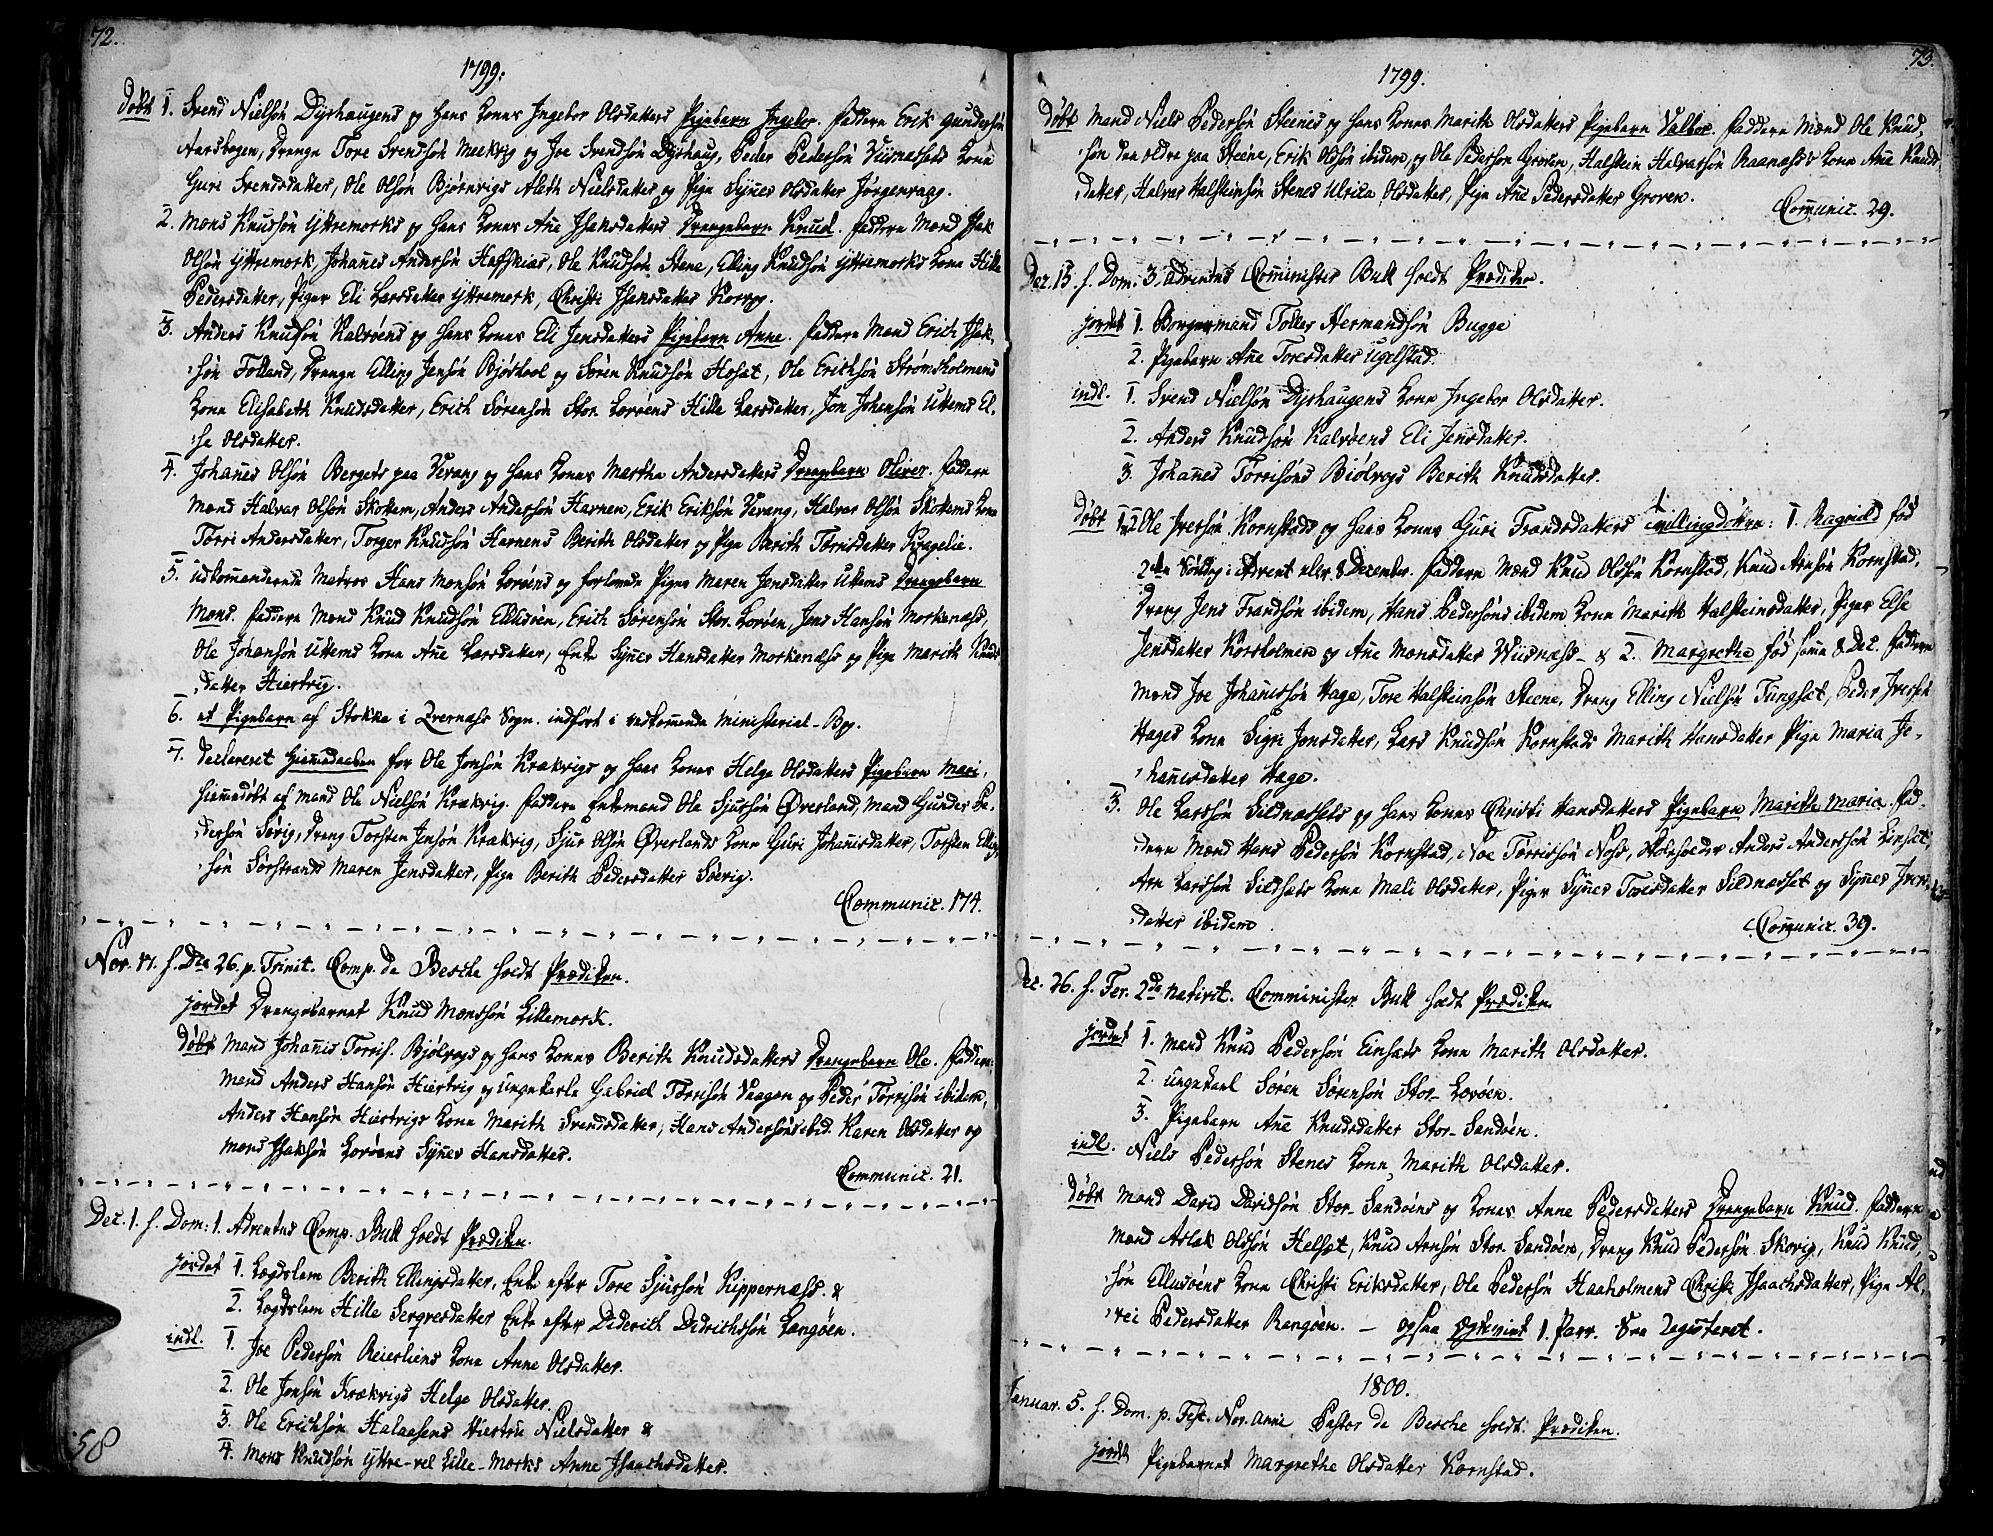 72.
1799.
Døbt 1. Svend Nielsøn Dyrhaugens og hans Kones Ingebor Olsdatters Pigebarn Ingebor. Faddere Erik Gundersøn
Aarsbogen, Drenge Tore Svendsøn Meekvig og Joe Svendsøn Dyrhaug, Peder Pedersøn Kone
Guri Svendsdatter, Ole Olsøn Bjørnvigs Aleth Nielsdatter og Pige Synev Olsdatter Jørgenvaag.
2. Mons Knudsøn Yttremorks og hans Kones Ane Isaksdatters Drengebarn Knud. Faddere Mænd Isak
Olsøn Yttremork, Johanes Andersøn Hestskiar, Ole Knudsøn Stene, Elling Knudsøn Yttremorks Kone Hille
Pedersdatter, Piger Eli Larsdatter Yttremork, Christi Isaksdatter
3. Anders Knudsøn Kalvøens og hans Kones Eli Jensdatters Pigebarn Anne. Faddere Mænd Erich Isak,
søn Folland, Drenge Elling Jensøn og Søren Knudsøn Hoset, Ole Erichsøn Strømsholmens
Kone Elisabeth Knudsdatter, Erich Sørensøn Stor-Lorøens Hille Larsdatter, Jon Johansøn Uttems El,
se Olsdatter.
4. Johanes Olsøn Bergets paa Verang og hans Kones Martha Andersdatters Drengebarn Oliver. Faddere
Mænd Halvor Olsøn Skottem, Anders Andersøn Harnen, Erik Eriksøn Verang, Halvor Olsøn Skottems Kone
Torri Andersdatter, Torger Knudsøn Harnens Berith Olsdatter og Pige Berith Torrisdatter
5. udkommanderede Matros Hans Monsøn Lorøens og forlovede Piges Maren Jensdatter Uttems Drengebarn
Mons. Faddere Mænd Knud Knudsøn Ellusøen, Erich Sørensøn Stor-Lorøen, Jens Hansøn Morkenæss,
Ole Johansøn Uttems Kone Ane Larsdatter, Enke Synev Hansdatter Morkenæss og Pige Marith Knuds
datter Hiertvig.
6. et Pigebarn af Stokke i Qvernæss Sogn. indført i vedkommende Ministerial-Bog.
7. Declareret Hiemedaaben for Ole Jonsøn Krækvigs og hans Kones Helge Olsdatters Pigebarn Mari,
hiemedøbt af Mand Ole Nielsøn Krækvig. Faddere Enkemand Ole Sjursøn Øverland, Mand Gunder Pe,
dersøn Sørvig, Dreng Torsten Jensøn Krækvig, Sjur Olsøn Øverlands Kone Guri Johanisdatter, Torsten Elling,
søn Sørstrands Maren Jensdatter, Pige Berith Pedersdatter Sørvig.
Communic. 174.
Nov. 17. h. Dca 26. p. Trinit. Comp. de Besche holdt Prædiken.
jordet Drengebarnet Knud Monssøn Lillemork.
Døbt Mand Johanis Torris. Bjølvogs og hans Kones Berith Knudsdatters Drengebarn Ole. Faddere
Mænd Anders Hansøn Hiertvig og Ungekarle Gabriel Torrisøn Vaagen og Peder Torrisøn ibidem,
Anders Hansøn Hiertvigs Kone Marith Svendsdatter, Hans Andersøns ibid. Karen Olsdatter og
Mons Isaksøn Lorøens Synev Hansdatter.
Communic. 21.
Dec. 1. h. Dom: 1. Adventus Comp. Buk holdt Prædiken.
jordet 1. Lægdslem Berith Ellingsdatter, Enke efter Tore Sjursøn Kippernæss. &
2. Lægdslem Hille Sergvesdatter Enke efter Diderich Didrichsøn Langøen.
indl. 1. Joe Pedersøn Reierliens Kone Anne Olsdatter.
2. Ole Jonsøn Krækvigs Helge Olsdatter.
3. Ole Erichsøn Halaasens Nielsdatter &
4. Mons Knudsøn Yttre-vel Lille-Morks Anne Isaachsdatter.
58
73.
1799.
Døbt Mand Niels Pedersøn Steenes og hans Kones Marith Olsdatters Pigebarn Valbor. Faddere Mænd Ole Knud,
søn den ældre paa Steene, Erik Olsøn ibidem, og Ole Pedersøn Groven, Halstein Halvorsøn Raanæss's Kone Ane Knuds
datter, Halvor Halsteinsøn Stenes Ulrica Olsdatter, Pige Ane Pedersdatter Groven.
Comunic. 29.
Dec. 15. h. Dom. 3. Adventus Cominister Buk holdt Prædiken.
jordet 1. Borgermand Toller Hermandsøn Bugge
2. Pigebarn Ane Toresdatter Ugelstad.
indl. 1. Svend Nielsøn Dyrhaugens Kone Ingebor Olsdatter.
2. Anders Knudsøn Kalvøens Eli Jensdatter.
3. Johanes Torrisøns Biølvogs Berith Knudsdatter.
Døbt 1 & 2 Ole Iversøn Kornstads og hans Kones Guri Frandsdatters tvillingdøttre: 1. Ragnild fød
2den Søndag i Advent eller 8 December. Faddere Mænd Knud Olsøn Kornstad, Knud Arnsøn Kornstad,
Dreng Jens Frandsøn ibidem, Hans Pedersøns ibidem Kone Marith Halsteinsdatter, Piger Else
Jensdatter Korsholmen og Ane Monsdatter Wiisnæss - & 2. Margrethe fød same 8 Dec. Faddere
Mænd Joe Johanessøn Hage, Tore Halsteinsøn Steene, Dreng Elling Nielsøn Tungset, Peder Iversøn
Hages Kone Sigri Jonsdatter, Lars Knudsøn Kornstads Marith Hansdatter Pige Maria Jo,
hanisdatter Hage.
3. Ole Larsøn Sildnæssets og hans Kones Christi Hansdatters Pigebarn Marith Maria. Fad,
dere Mænd Hans Pedersøn Kornstad, Noe Torrissøn Noss, Anders Anderssøn Einset,
Arn Larssøn Kone Mali Olsdatter, Piger Synev Toresdatter Sildnæsset og Synev Ivers,
datter ibidem.
Comunic. 39.
Dec. 26. h. Fer. 2da Nativit. Comminister Buk holdt Prædiken
jordet 1. Mand Knud Pedersøn Einsæts Kone Marith Olsdatter.
2. Ungekarl Søren Sørensøn Stor-Lorøen.
3. Pigebarn Ane Knudsdatter Stor-Sandøen.
indl. Niels Pedersøn Stenes Kone Marith Olsdatter.
Døbt Mand David Davidsøn Stor-Sandøens og Kones Anne Pedersdatters Drengebarn Knud. Faddere
Mænd Aslak Olssøn Helset, Knud Arnsøn Stor Sandøen, Dreng Knud Pedersøn Skovig, Knud Knud,
søn Ellusøens Kone Christi Eriksdatter, Ole Pedersøn Haaholmens Christi Isaachsdatter, Pige Al,
vei Pedersdatter Rangøen. - ogsaa Egteviet 1. Parr. Vide Registeret.
1800.
Januar. 5. h. Dom. p. Fest. Nov. Anni Pastor de Besche holdt Prædiken.
jordet Pigebarnet Margrethe Olsdatter Kornstad.